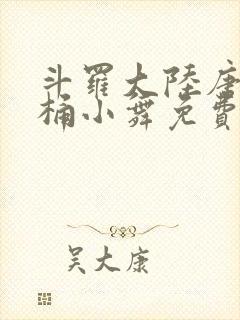 斗羅大陸唐
桶小舞免費
吳大康